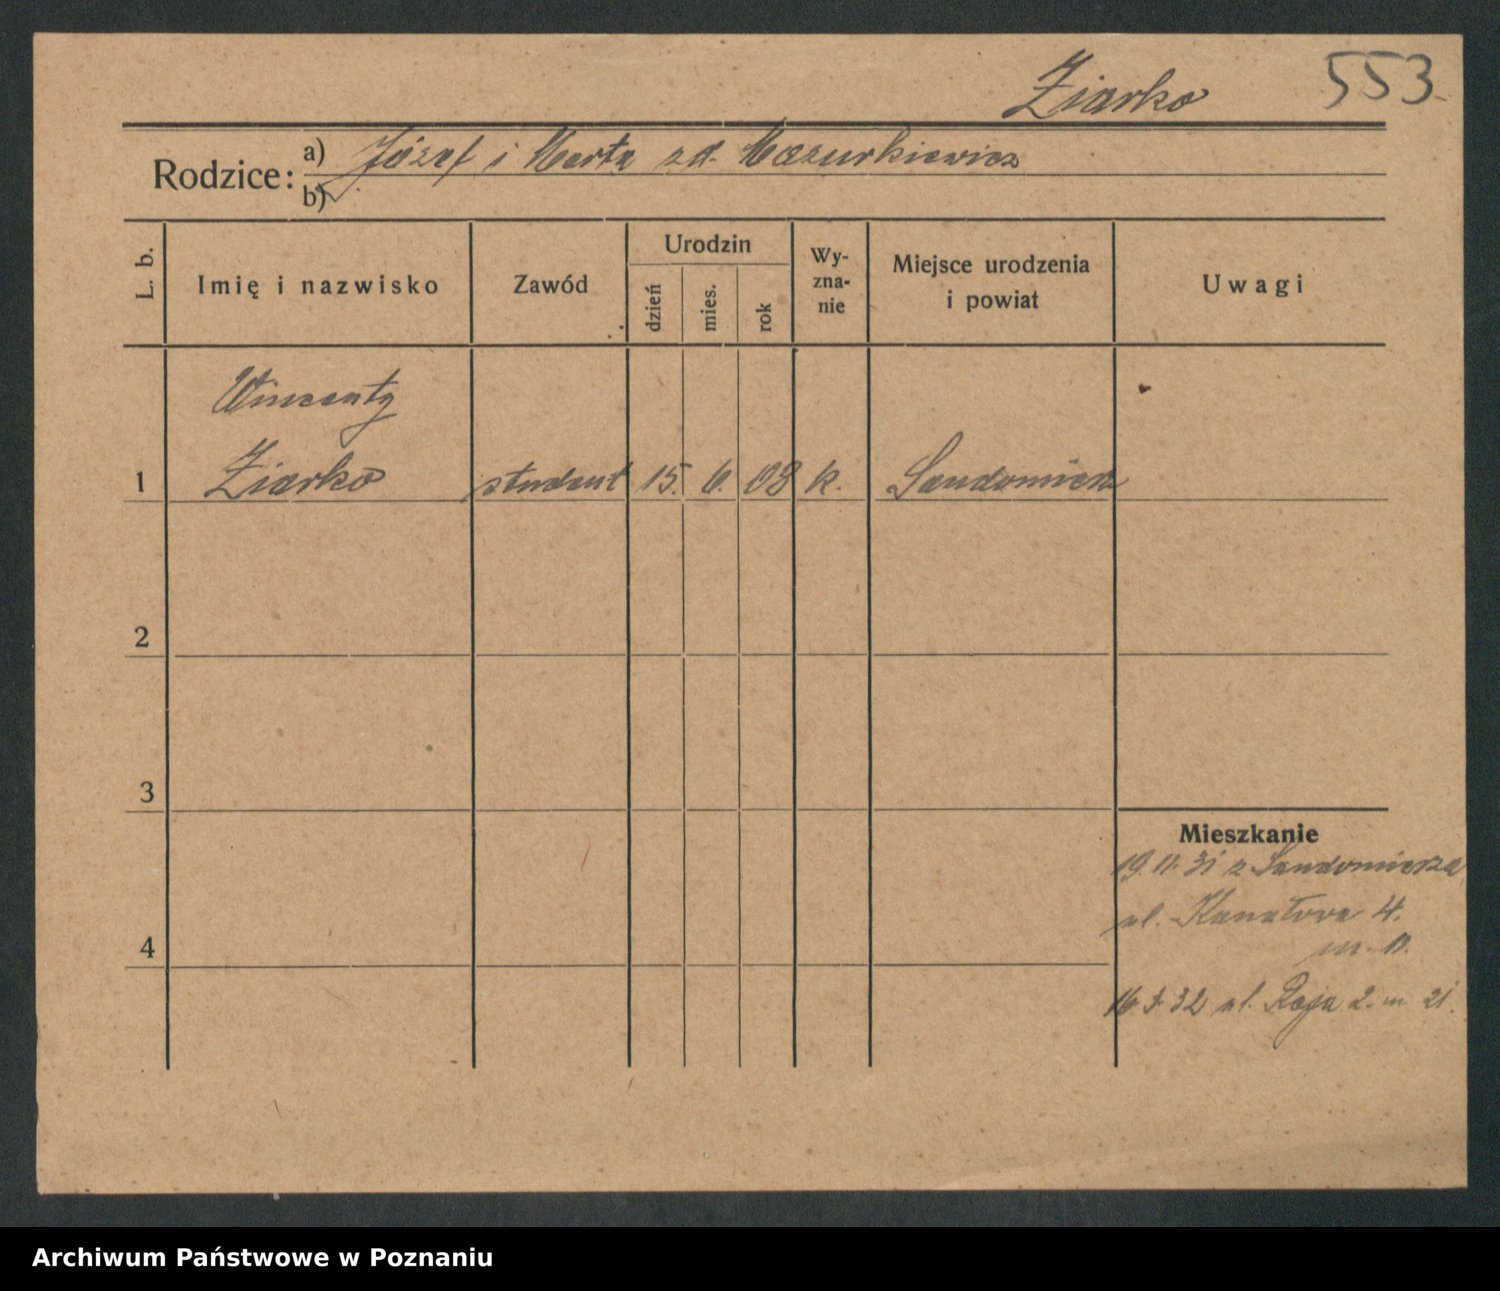 Ziarko 553
Rodzice: a) Józef i Marta zd. Mazurkiewicz
b)
L. b.
Imię i nazwisko
Zawód
Urodzin
dzień
mies.
rok
Wy-
zna-
nie
Miejsce urodzenia
i powiat
Uwagi
Wincenty
1 Ziarko student 15. 6. 08 k. Sandomierz
2
3
4
Mieszkanie
19.11.31 z Sandomierza
ul. Kanałowa 4.
m. 11.
16.3.32 ul. Reja 2. m 21.
Archiwum Państwowe w Poznaniu